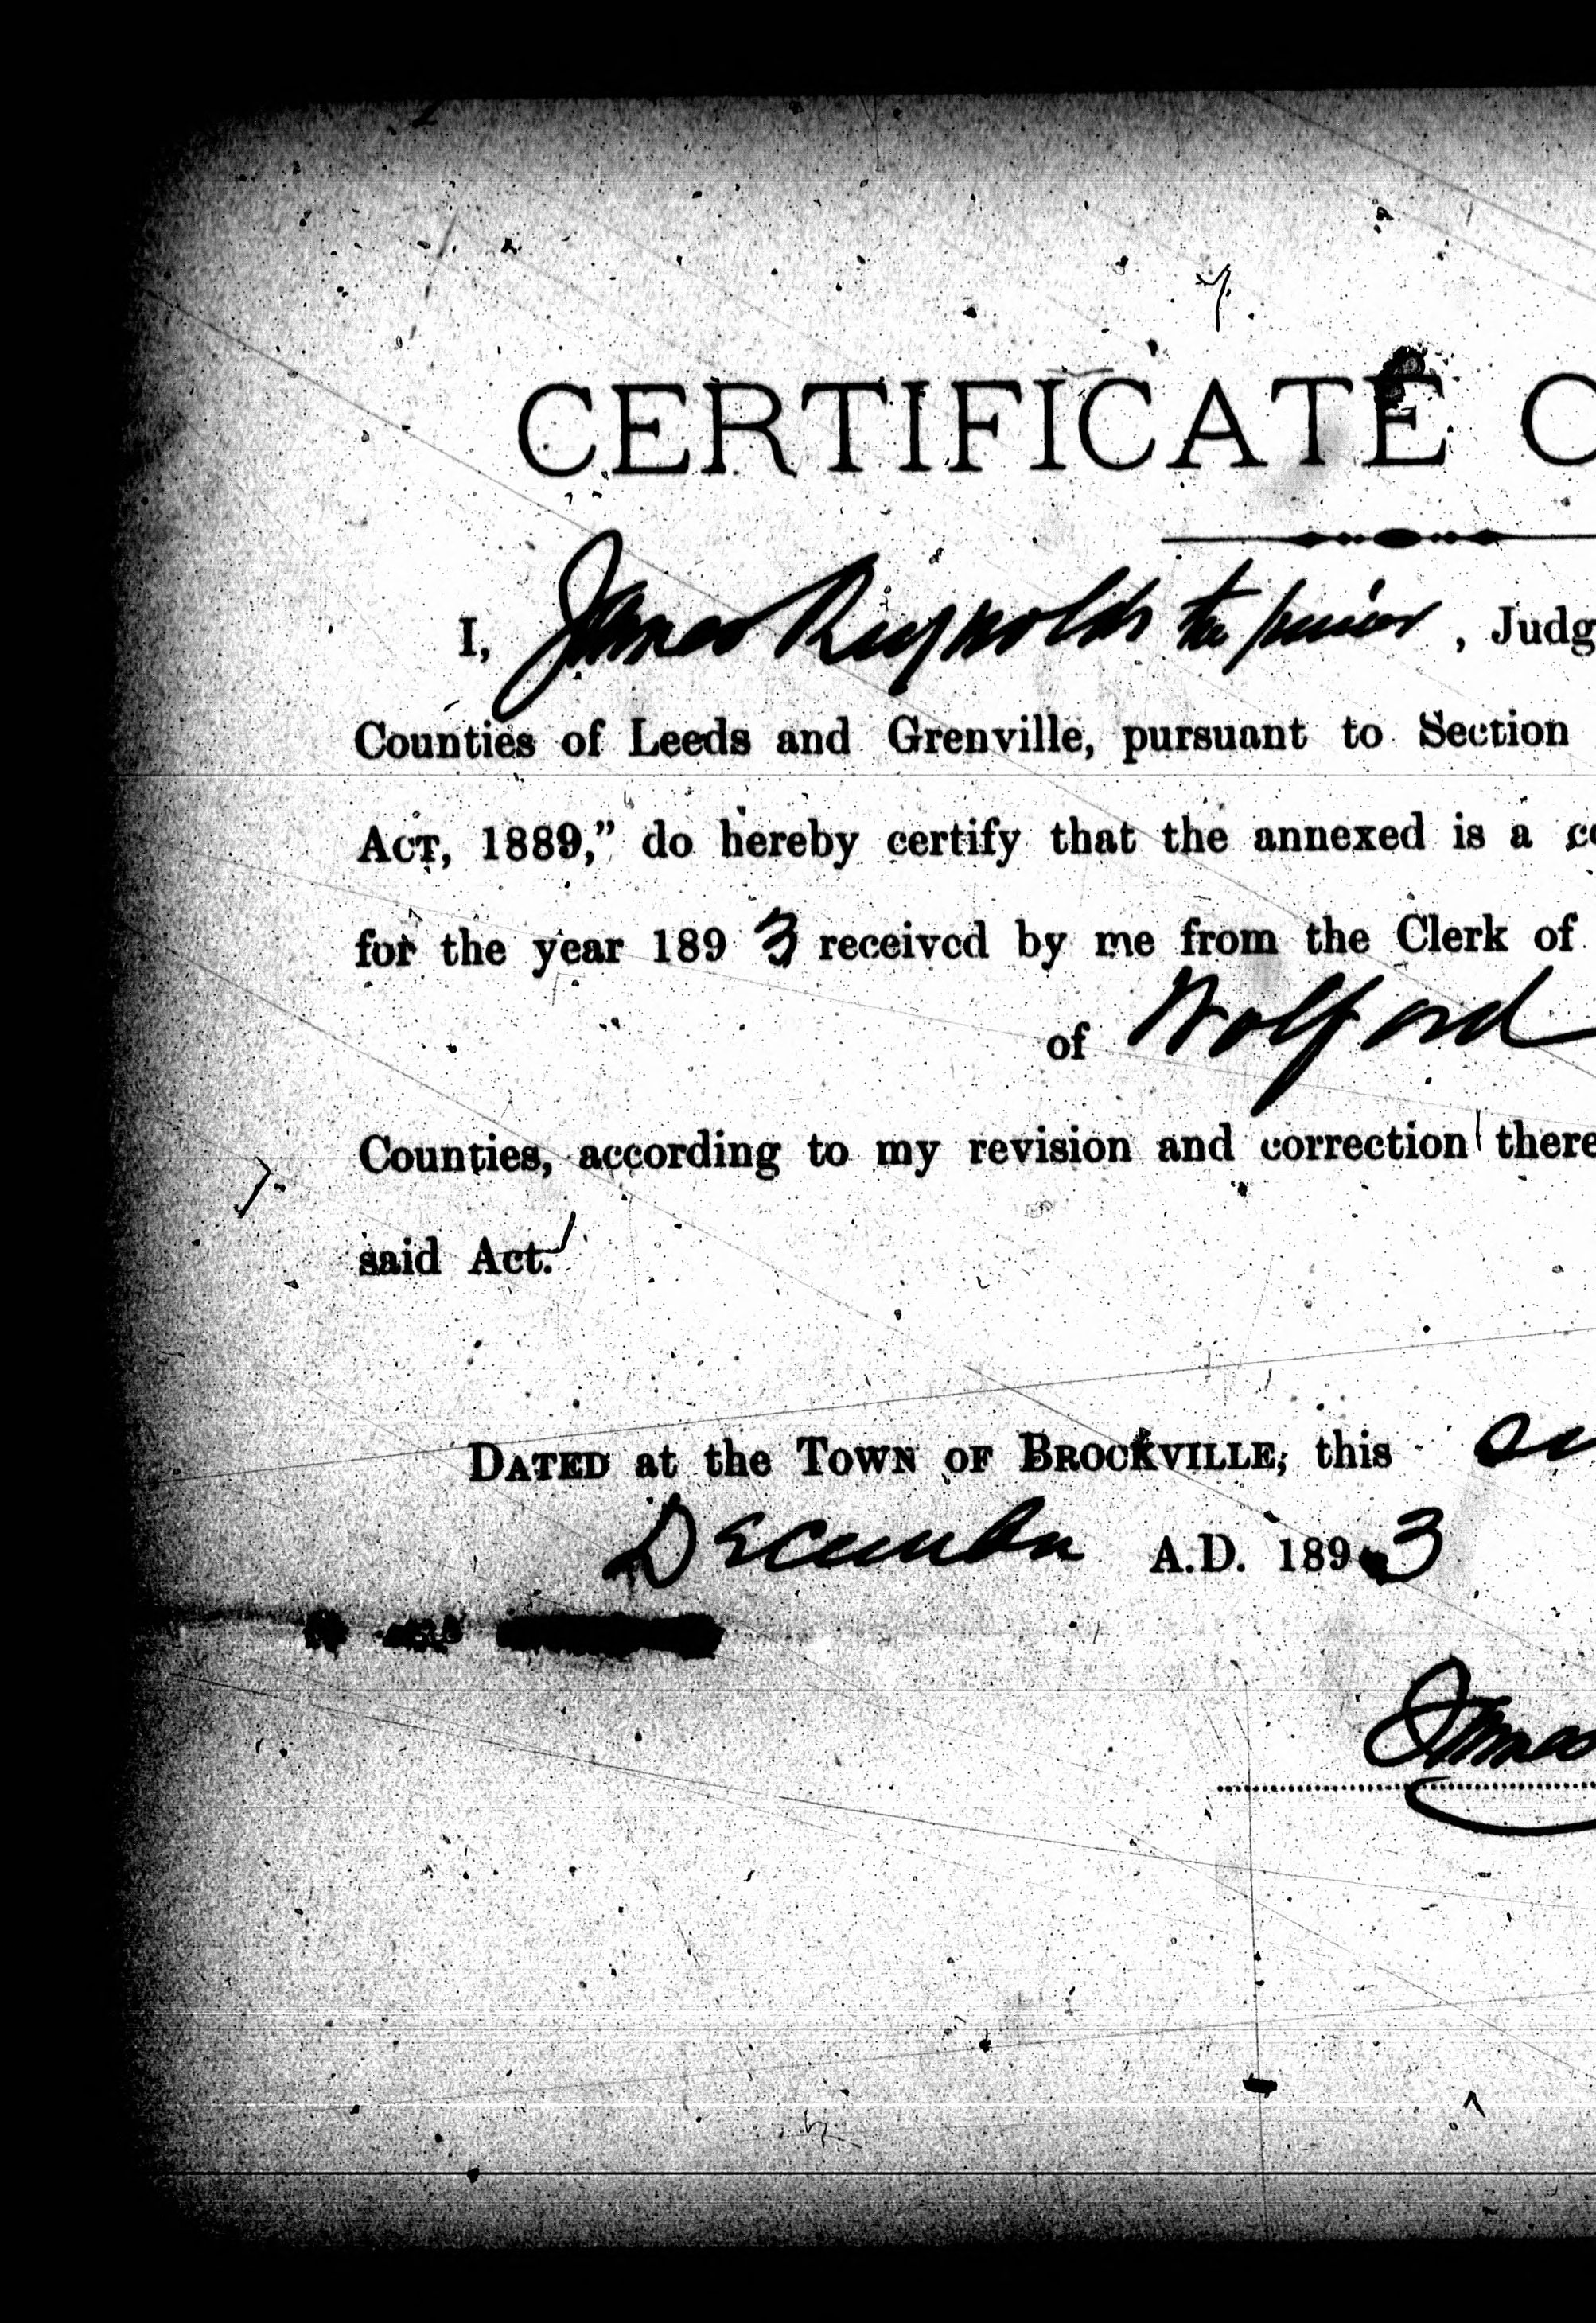 CERTIFICATE
I, James Reynolds the junior, Judg
Counties of Leeds and Grenville, pursuant to Section
ACT, 1889,” do hereby certify that the annexed is a
for the year 1893 received by me from the Clerk of
of Wolford
Counties, according to my revision and correction there
said Act.
DATED at the TOWN OF BROCKVILLE, this
December A.D. 1893
James